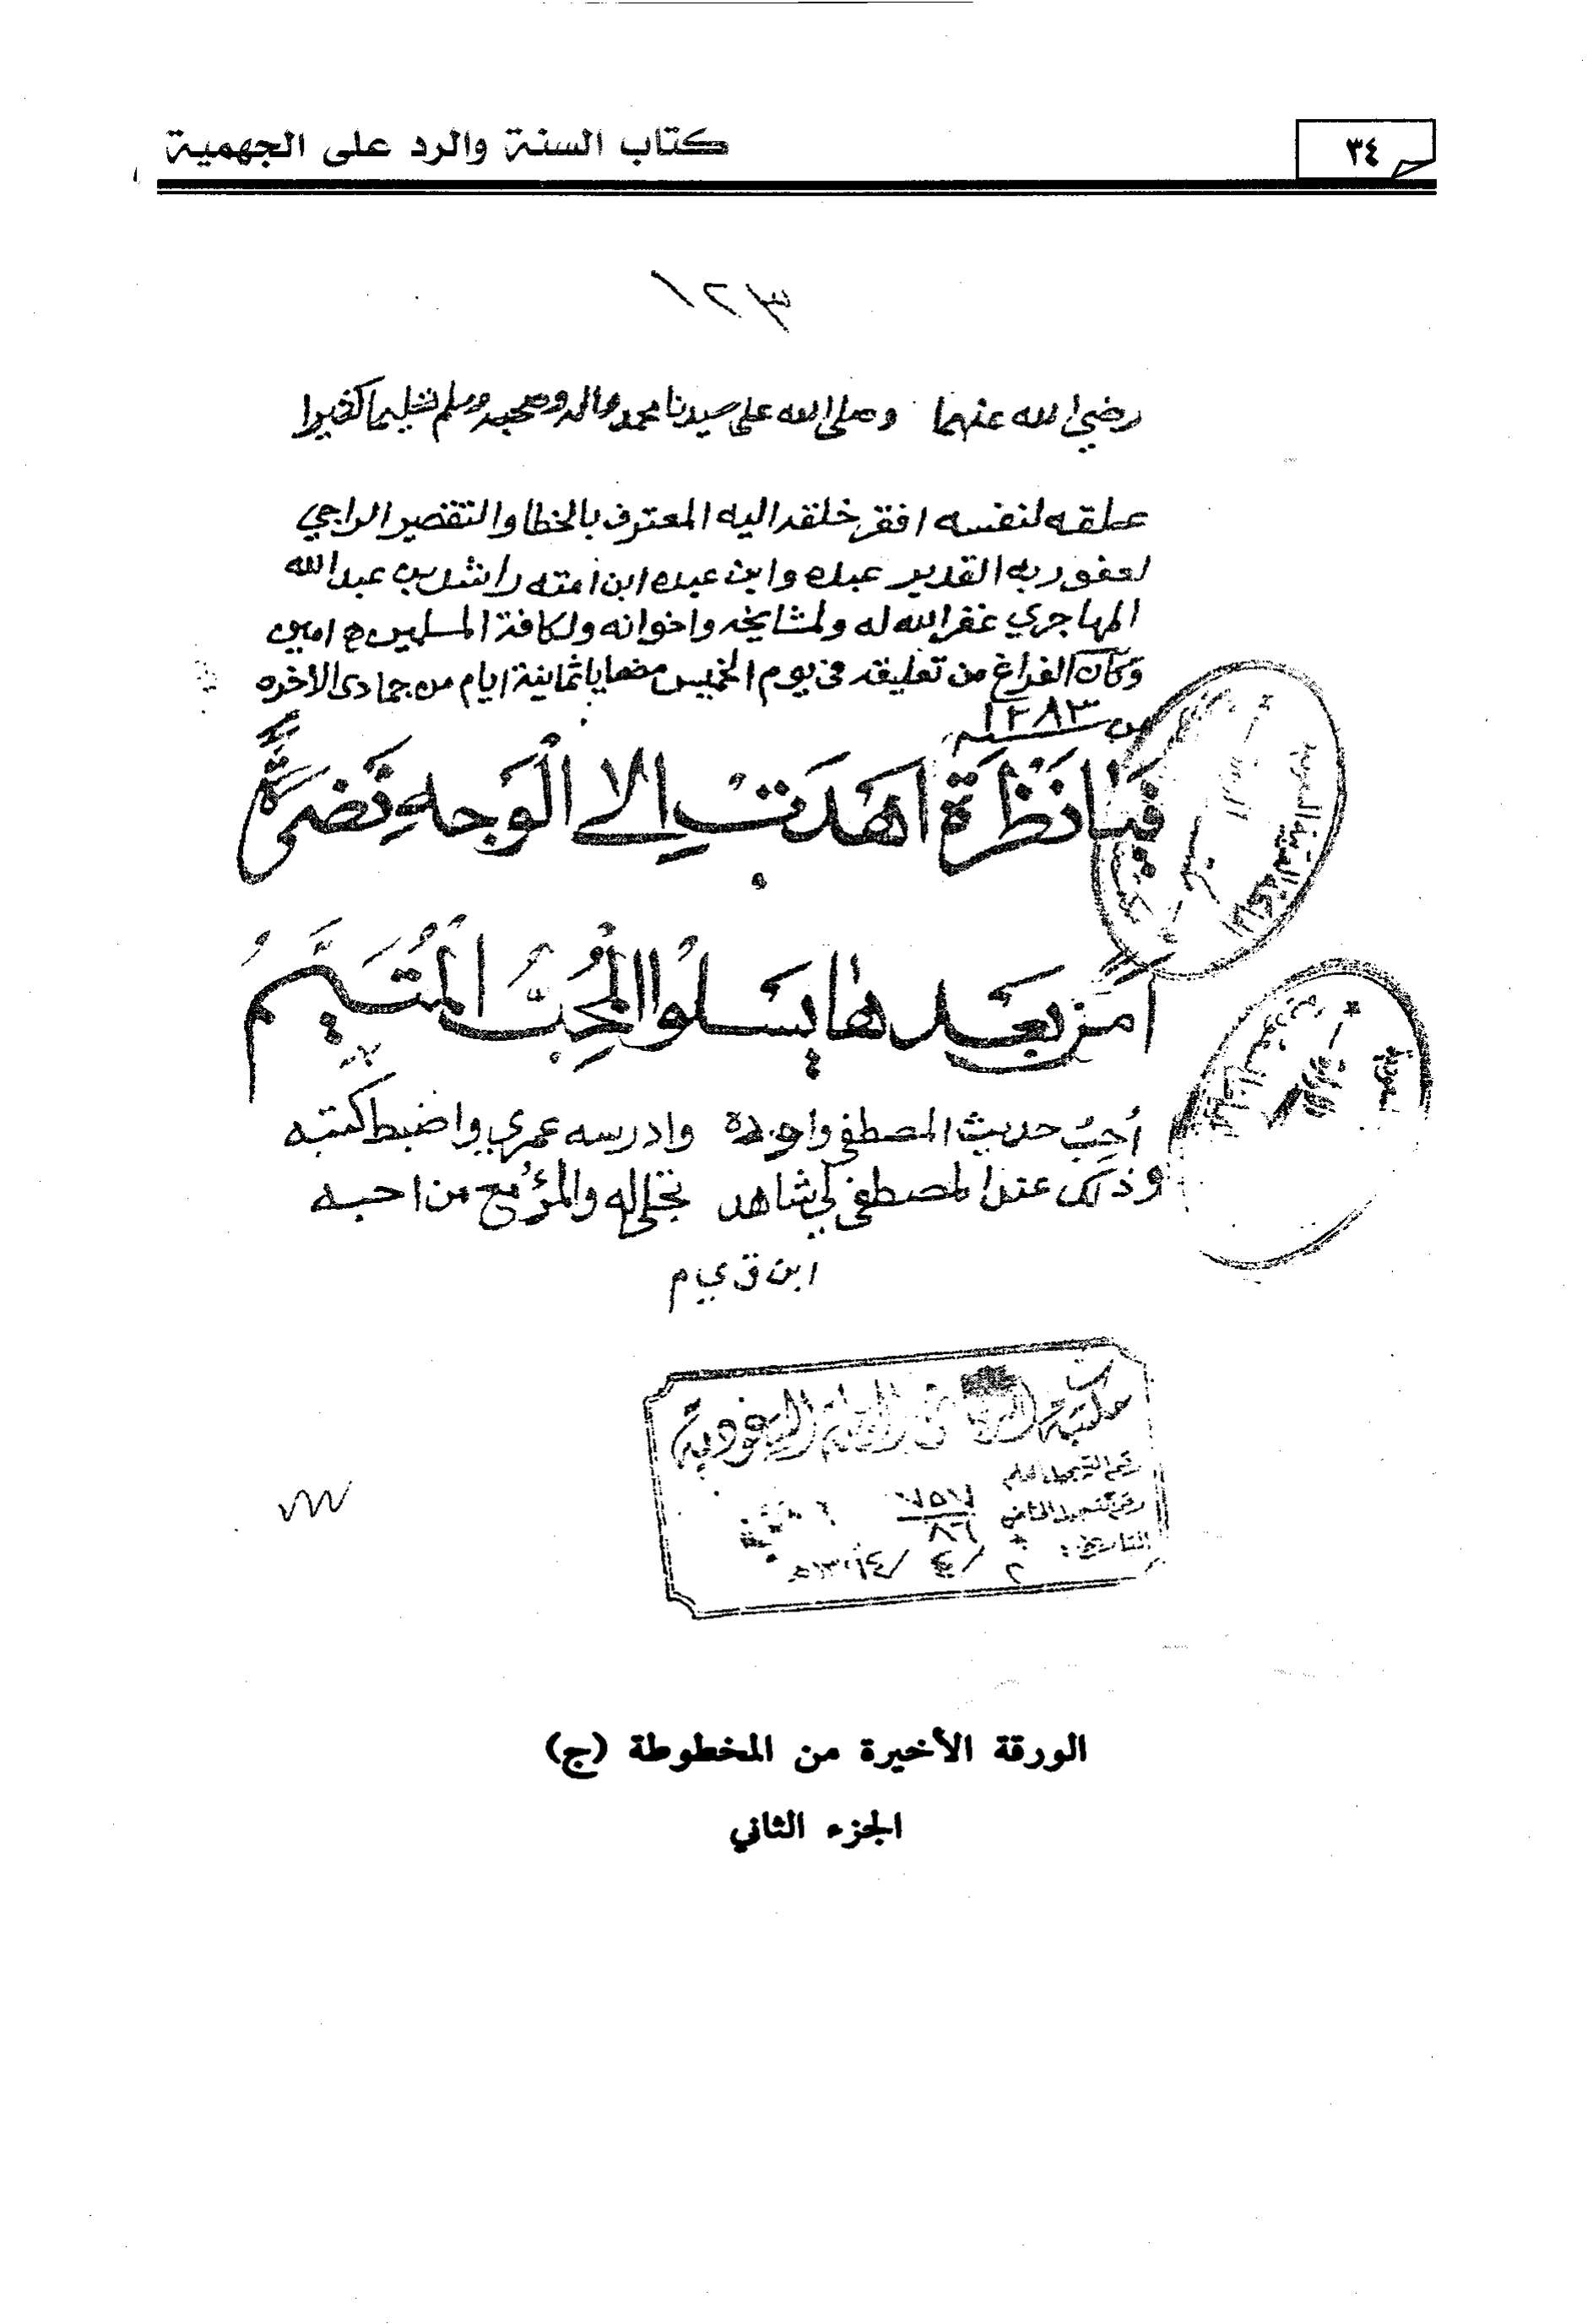 ٣٤
كتاب السنة والرد على الجهمية
رضي الله عنهما وصلى الله على سيدنا محمد واله وصحبه وسلم تسليما كثيرا
علقه لنفسه افقر خلقه اليه المعترف بالخطا والتقصير الراجي
لعفو ربه القدير عبده وابن عبده ابن امته راشد بن عبد الله
المهاجري غفر الله له ولمشايخه واخوانه ولكافة المسلمين امين
وكان الفراغ من تعليقه في يوم الخميس مضايا ثمانية ايام من جمادى الاخره
من سنة ١٢٨٣
فيا نظرة اهدت إلى الوجه نضرة
امن بعدها يسلوا المحب المتيم
أحب حديث المصطفى وأوده وادرسه عمري واضبط كتبه
وذلك عند المصطفى لي شاهد بخلي له والمرؤ مع من احبه
ابن ق ي م
السعودية
رقم التسجيل العام
رقم التسجيل الخاص
٧٥٧
٨٦
التاريخ:
الورقة الأخيرة من المخطوطة (ج)
الجزء الثاني